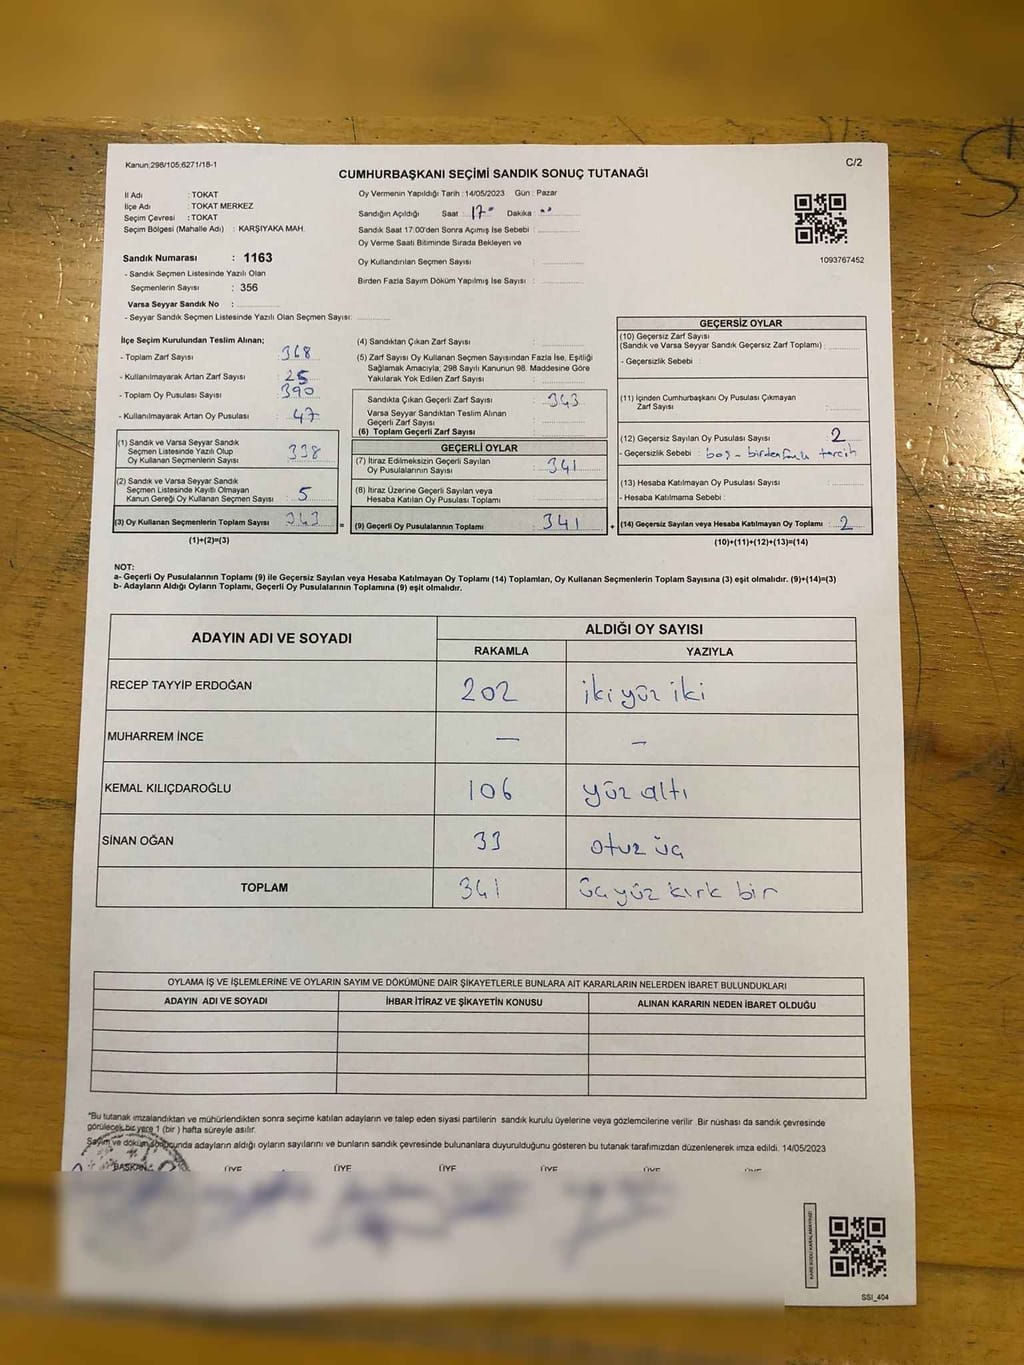 Kanun:298/105;6271/18-1
C/2
CUMHURBAŞKANI SEÇİMİ SANDIK SONUÇ TUTANAĞI
İl Adı : TOKAT
İlçe Adı : TOKAT MERKEZ
Seçim Çevresi : TOKAT
Seçim Bölgesi (Mahalle Adı) : KARŞIYAKA MAH.
Sandık Numarası : 1163
- Sandık Seçmen Listesinde Yazılı Olan
Seçmenlerin Sayısı : 356
Varsa Seyyar Sandık No :
- Seyyar Sandık Seçmen Listesinde Yazılı Olan Seçmen Sayısı:
Oy Vermenin Yapıldığı Tarih : 14/05/2023 Gün : Pazar
Sandığın Açıldığı Saat 17⁰⁰ Dakika
Sandık Saat 17:00'den Sonra Açımış İse Sebebi :
Oy Verme Saati Bitiminde Sırada Bekleyen ve
Oy Kullandırılan Seçmen Sayısı :
Birden Fazla Sayım Döküm Yapılmış İse Sayısı :
1093767452
İlçe Seçim Kurulundan Teslim Alınan;
- Toplam Zarf Sayısı : 368
- Kullanılmayarak Artan Zarf Sayısı : 25
- Toplam Oy Pusulası Sayısı : 390
- Kullanılmayarak Artan Oy Pusulası : 47
(1) Sandık ve Varsa Seyyar Sandık
Seçmen Listesinde Yazılı Olup
Oy Kullanan Seçmenlerin Sayısı : 338
(2) Sandık ve Varsa Seyyar Sandık
Seçmen Listesinde Kayıtlı Olmayan
Kanun Gereği Oy Kullanan Seçmen Sayısı : 5
(3) Oy Kullanan Seçmenlerin Toplam Sayısı : 343 =
(1)+(2)=(3)
(4) Sandıktan Çıkan Zarf Sayısı :
(5) Zarf Sayısı Oy Kullanan Seçmen Sayısından Fazla İse, Eşitliği
Sağlamak Amacıyla; 298 Sayılı Kanunun 98. Maddesine Göre
Yakılarak Yok Edilen Zarf Sayısı :
Sandıkta Çıkan Geçerli Zarf Sayısı : 343
Varsa Seyyar Sandıktan Teslim Alınan
Geçerli Zarf Sayısı :
(6) Toplam Geçerli Zarf Sayısı :
GEÇERLİ OYLAR
(7) İtiraz Edilmeksizin Geçerli Sayılan
Oy Pusulalarının Sayısı : 341
(8) İtiraz Üzerine Geçerli Sayılan veya
Hesaba Katılan Oy Pusulası Toplamı :
(9) Geçerli Oy Pusulalarının Toplamı : 341 +
GEÇERSİZ OYLAR
(10) Geçersiz Zarf Sayısı
(Sandık ve Varsa Seyyar Sandık Geçersiz Zarf Toplamı) :
- Geçersizlik Sebebi :
(11) İçinden Cumhurbaşkanı Oy Pusulası Çıkmayan
Zarf Sayısı :
(12) Geçersiz Sayılan Oy Pusulası Sayısı : 2
- Geçersizlik Sebebi : boş - birden fazla tercih
(13) Hesaba Katılmayan Oy Pusulası Sayısı :
- Hesaba Katılmama Sebebi :
(14) Geçersiz Sayılan veya Hesaba Katılmayan Oy Toplamı : 2
(10)+(11)+(12)+(13)=(14)
NOT:
a- Geçerli Oy Pusulalarının Toplamı (9) ile Geçersiz Sayılan veya Hesaba Katılmayan Oy Toplamı (14) Toplamları, Oy Kullanan Seçmenlerin Toplam Sayısına (3) eşit olmalıdır. (9)+(14)=(3)
b- Adayların Aldığı Oyların Toplamı, Geçerli Oy Pusulalarının Toplamına (9) eşit olmalıdır.
ADAYIN ADI VE SOYADI
ALDIĞI OY SAYISI
RAKAMLA YAZIYLA
RECEP TAYYİP ERDOĞAN 202 iki yüz iki
MUHARREM İNCE — —
KEMAL KILIÇDAROĞLU 106 yüz altı
SİNAN OĞAN 33 otuz üç
TOPLAM 341 üç yüz kırk bir
OYLAMA İŞ VE İŞLEMLERİNE VE OYLARIN SAYIM VE DÖKÜMÜNE DAİR ŞİKAYETLERLE BUNLARA AİT KARARLARIN NELERDEN İBARET BULUNDUKLARI
ADAYIN ADI VE SOYADI İHBAR İTİRAZ VE ŞİKAYETİN KONUSU ALINAN KARARIN NEDEN İBARET OLDUĞU
*Bu tutanak imzalandıktan ve mühürlendikten sonra seçime katılan adayların ve talep eden siyasi partilerin sandık kurulu üyelerine veya gözlemcilerine verilir. Bir nüshası da sandık çevresinde
görülecek bir yere 1 (bir ) hafta süreyle asılır.
Sayım ve döküm sonucunda adayların aldığı oyların sayılarını ve bunların sandık çevresinde bulunanlara duyurulduğunu gösteren bu tutanak tarafımızdan düzenlenerek imza edildi. 14/05/2023
BAŞKAN ÜYE ÜYE ÜYE ÜYE ÜYE ÜYE
SSI_404